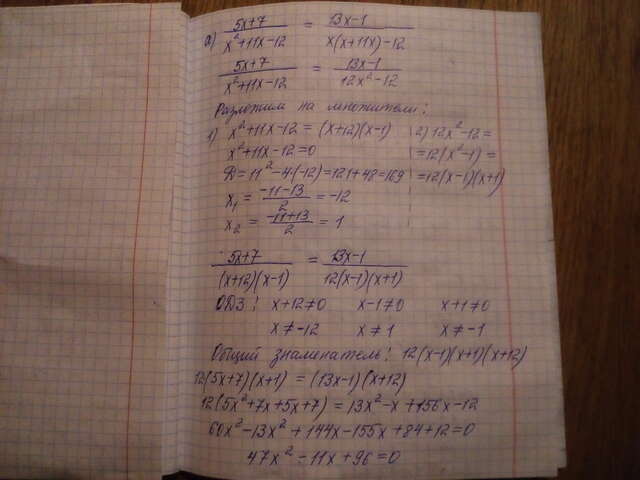 а) (5x+7)/(x²+11x-12) = (13x-1)/(x(x+11x)-12)
(5x+7)/(x²+11x-12) = (13x-1)/(12x²-12)
Разложим на множители:
1) x²+11x-12=(x+12)(x-1)
x²+11x-12=0
D=11²-4·(-12)=121+48=169
x₁=(-11-13)/2=-12
x₂=(-11+13)/2=1
2) 12x²-12=
=12(x²-1)=
=12(x-1)(x+1)
(5x+7)/((x+12)(x-1)) = (13x-1)/(12(x-1)(x+1))
ОДЗ: x+12≠0 x-1≠0 x+1≠0
x≠-12 x≠1 x≠-1
Общий знаменатель: 12(x-1)(x+1)(x+12)
12(5x+7)(x+1)=(13x-1)(x+12)
12(5x²+7x+5x+7)=13x²-x+156x-12
60x²-13x²+144x-155x+84+12=0
47x²-11x+96=0